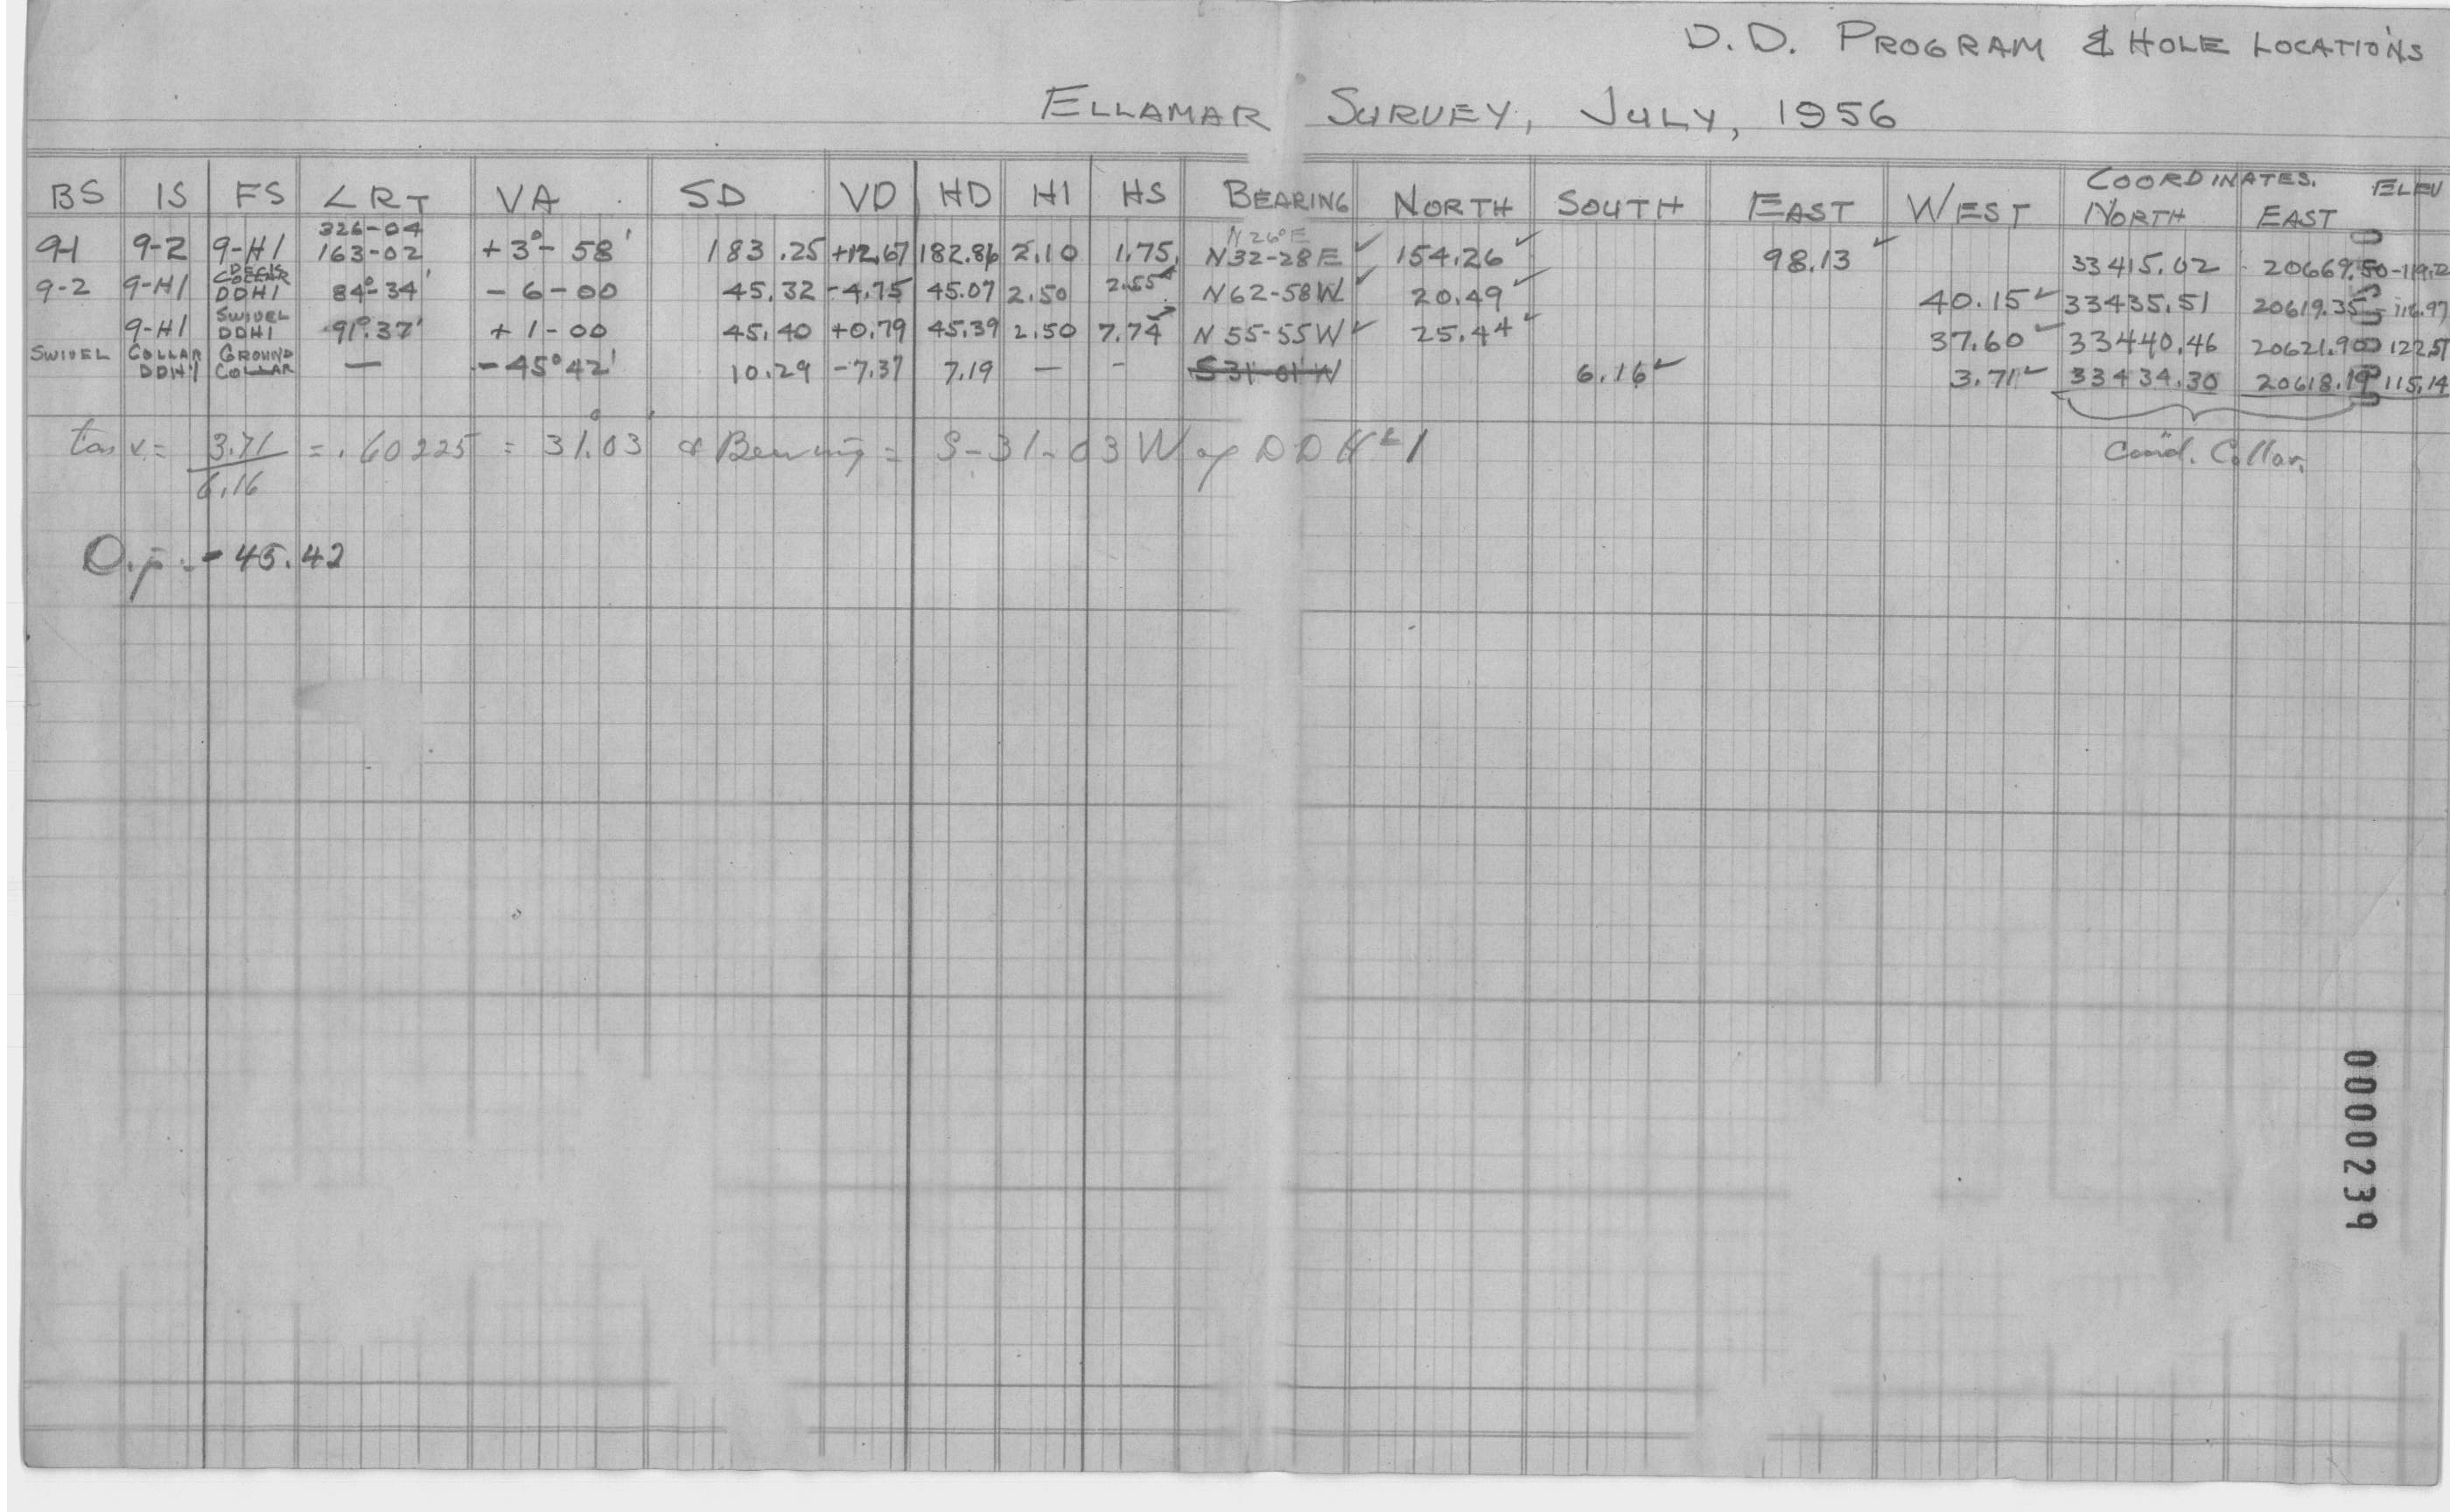 D.D. PROGRAM & HOLE LOCATIONS
ELLAMAR SURVEY, JULY, 1956
BS IS FS LRT VA SD VD HD HI HS BEARING NORTH SOUTH EAST WEST COORDINATES. NORTH EAST ELEV
326-04 N26°E
9-1 9-2 9-H1 163-02 +3°-58' 183.25 +12.67 182.86 2.10 1.75 N32-28E ✓ 154.26 ✓ 98.13 ✓ 33415.02 20669.50
9-2 9-H1 COLLAR DDH1 84°-34' -6-00 45.32 -4.75 45.07 2.50 2.55 N62-58W ✓ 20.49 ✓ 40.15 ✓ 33435.51 20619.35 116.97
9-H1 SWIVEL DDH1 91°37' +1-00 45.40 +0.79 45.39 2.50 7.74 N55-55W ✓ 25.44 ✓ 37.60 ✓ 33440.46 20621.90 122.51
SWIVEL COLLAR DDH1 GROUND COLLAR — -45°42' 10.29 -7.37 7.19 — - S31-01W 6.16 ✓ 3.71 ✓ 33434.30 20618.19 115.14
tan = 3.71 / 6.16 = .60225 = 31°.03' Bearing = S-31-03W of DDH #1
Coord. Collar.
Dip - 45.42
0000239